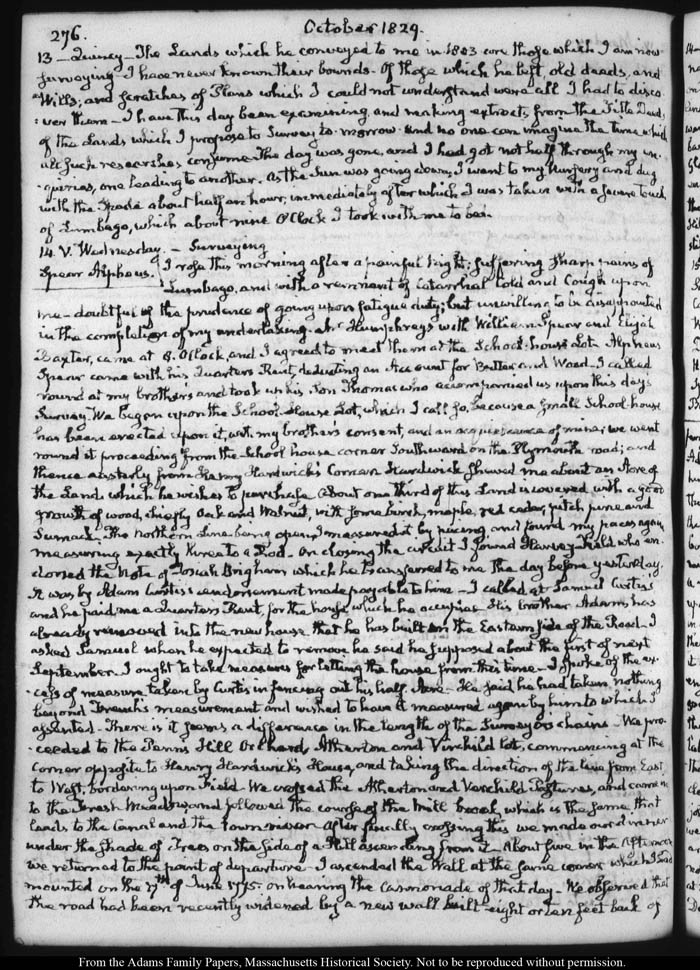 276.
October 1829.
13 — Quincy — The Lands which he conveyed to me in 1803 are those which I am now
surveying. I have never known their bounds. Of those which he left, old deeds, and
Wills, and scratches of Plans which I could not understand were all I had to disco-
:ver them — I have this day been examining, and making extracts, from the Title Deeds,
of the Lands which I propose to Survey to-morrow. And no one can imagine the time which
all such researches consume. The day was gone, and I had got not half through my en-
-quiries, one leading to another. As the Sun was going down, I went to my Nursery and dug
with the Spade about half an hour; immediately after which I was taken with a severe touch
of Lumbago, which about nine O'Clock I took with me to bed.
14. V. Wednesday. — Surveying
Spear Alpheus. I rose this morning after a painful Night; suffering sharp pains of
Lumbago, and with a remnant of Catarrhal Cold and Cough upon
me — doubtful of the prudence of going upon fatigue duty; but unwilling to be disappointed
in the completion of my undertaking. Mr Humphreys with William Spear and Elijah
Baxter, came at 8. O'Clock, and I agreed to meet them at the School-house Lot. Alpheus
Spear came with his Quarters Rent, deducting an Account for Butter and Wood — I called
round at my brother's and took in his Son Thomas who accompanied us upon this day's
Survey. We began upon the School-House Lot, which I call so, because a small School-house
has been erected upon it, with my brother's consent, and an acquiescence of mine; we went
round it proceeding from the School house corner Southward on the Plymouth road; and
thence easterly from Harry Hardwick's Corner. Hardwick shewed me about an Acre of
the Land which he wishes to purchase. About one third of this Land is covered with a good
growth of wood, chiefly Oak and Walnut, with some birch, maple, red cedar, pitch pine and
Sumach. The Northern Line being open, I measured it by pacing and found my paces again
measuring exactly three to a Rod. On closing the circuit I found Harvey Field who en-
dorsed the Note of Josiah Brigham which he transferred to me the day before yesterday.
It was by Adam Curtis's endorsement made payable to him — I called at Samuel Curtis's
and he paid me a Quarters Rent, for the house which he occupies. His brother Adam, has
already removed into the new house that he has built on the Eastern side of the Road. I
asked Samuel when he expected to remove he said he supposed about the first of next
September. I ought to take measures for letting the house from this time — I spoke of the ex-
-cess of measure taken by Curtis in fencing out his half Acre. He said he had taken nothing
beyond French's measurement and wished to have it measured again by him to which I
assented — There is it seems a difference in the length of the Surveyors chains — We pro-
-ceeded to the Penn's Hill Orchard, Atherton and Verchild lots, commencing at the
corner opposite to Harry Hardwick's House, and taking the direction of the line from East
to West, bordering upon Field. We crossed the Atherton and Verchild Pastures, and came
to the Fresh Meadow, and followed the course of the Mill brook, which is the same that
leads to the Canal and the town river. After finally crossing this we made our dinner
under the shade of Trees on the side of a Hill ascending from it. About five in the Afternoon
we returned to the point of departure — I ascended the Wall at the same corner which I had
mounted on the 17th of June 1775. on hearing the cannonade of that day — We observed that
the road had been recently widened by a new wall built eight or ten feet back of
From the Adams Family Papers, Massachusetts Historical Society. Not to be reproduced without permission.